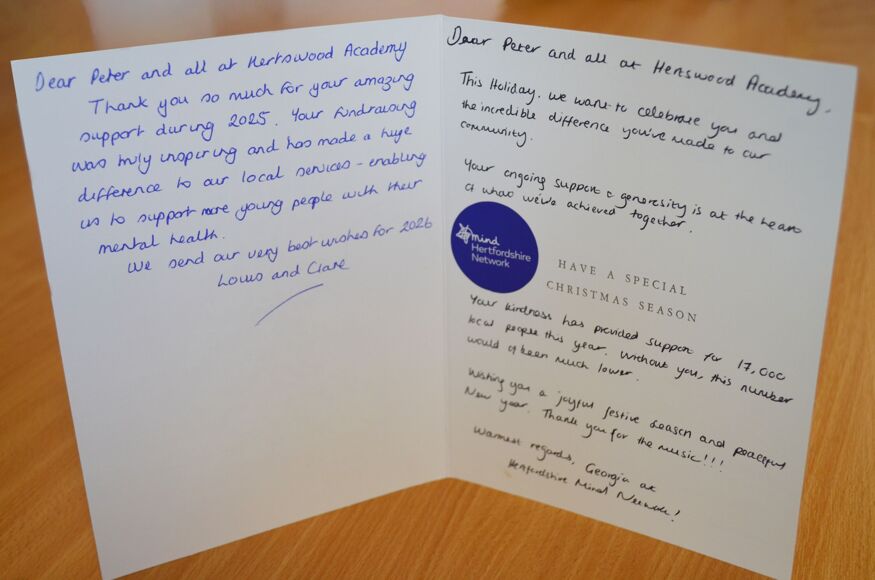 Dear Peter and all at Hertswood Academy
Thank you so much for your amazing
support during 2025. Your fundraising
was truly inspiring and has made a huge
difference to our local services - enabling
us to support more young people with their
mental health.
We send our very best wishes for 2026
Louis and Clare
Dear Peter and all at Hertswood Academy,
This Holiday, we want to celebrate you and
the incredible difference you've made to our
community.
Your ongoing support & generosity is at the heart
of what we've achieved together.
mind
Hertfordshire
Network
HAVE A SPECIAL
CHRISTMAS SEASON
Your kindness has provided support for 17,000
local people this year. Without you, this number
would of been much lower.
Wishing you a joyful festive season and peaceful
New year. Thank you for the music!!!
Warmest regards, Georgia at
Hertfordshire Mind Network!